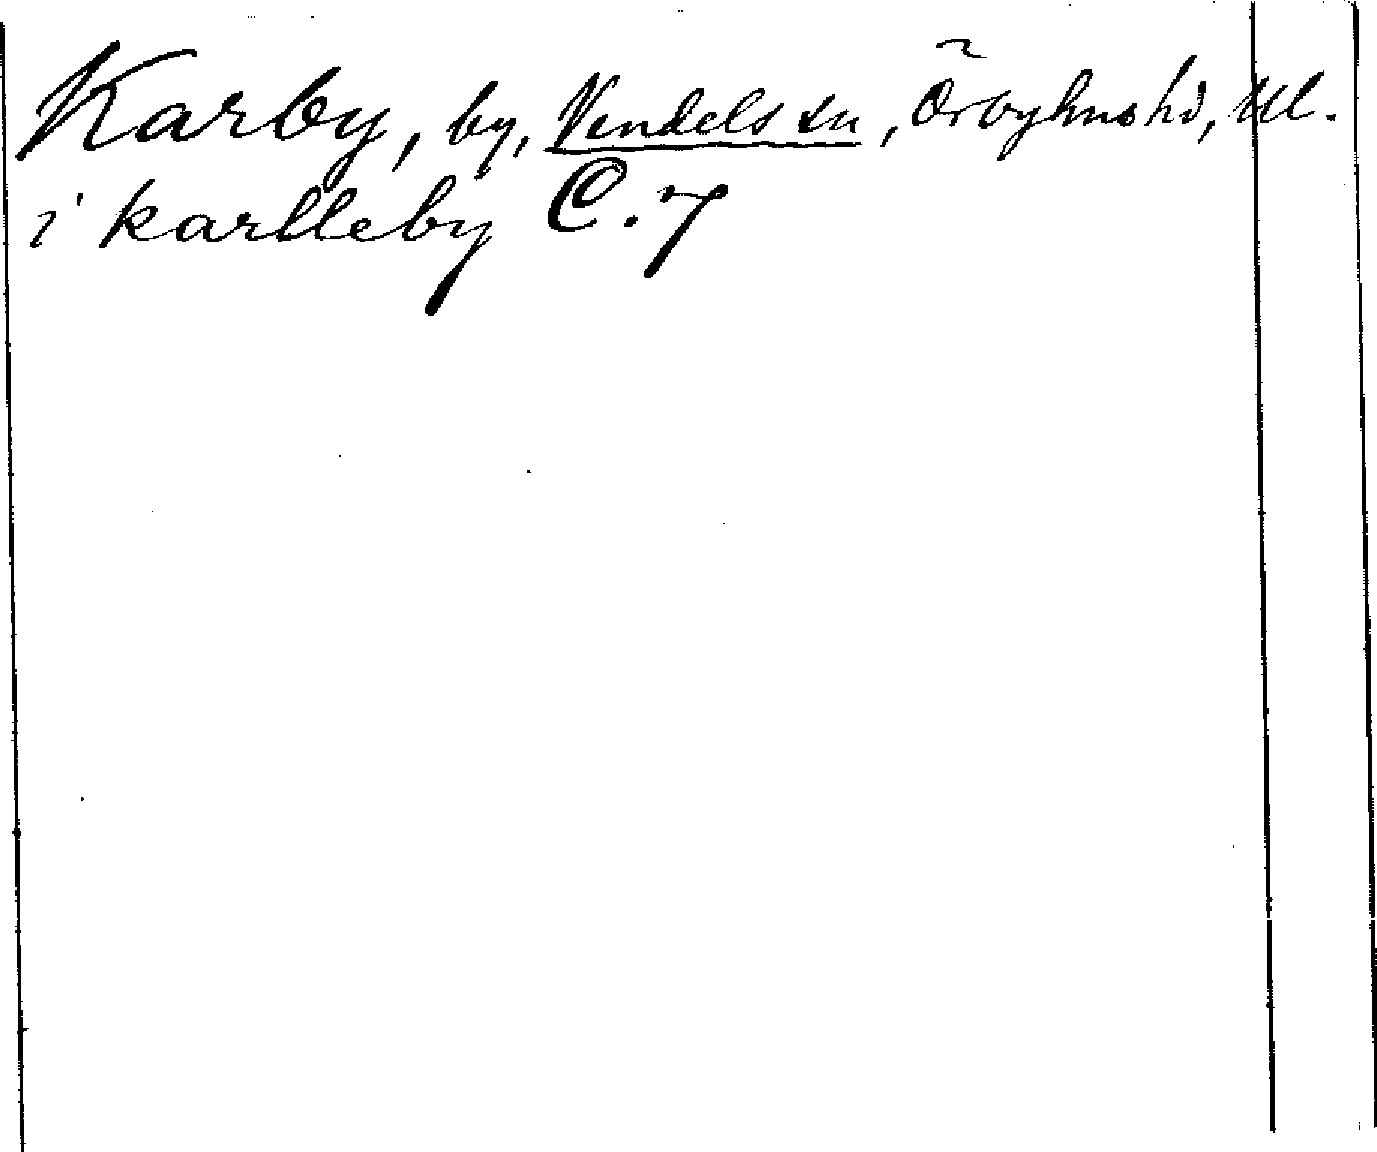 Karby, by, Vendels sn, Örbyhus hd, Ul.
i karlleby C. 7